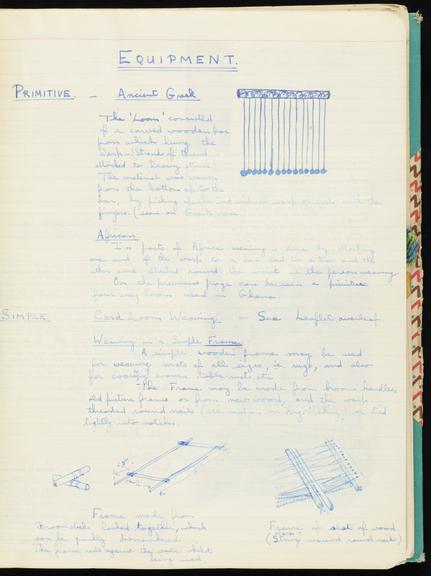 EQUIPMENT.
PRIMITIVE. - Ancient Greek
The 'Loom' consisted
of a carved wooden bar
from which hung the
Warp - (Strands of thread
attached to heavy stones)
The material was woven
from the bottom up to the
bar, by picking up warp threads with the
fingers. (seen on Greek vases)
African
In parts of Africa weaving is done by attaching
one end of the warp to a bar tied to a tree and the
other end attached round the waist of the person weaving
On the previous page can be seen a primitive
loom used in Ghana
SIMPLE. Card Loom Weaving - See Leaflet overleaf
Weaving on a Simple Frame
A simple wooden frame may be used
for weaving mats of all sizes, ie rugs, and also
for table mats etc.
The Frame may be made from broom handles,
old picture frames or from new wood, and the warp
threaded round nails (see section on Rug Making) or tied
tightly into notches.
Frame made from
Broomsticks lashed together, which
can be quickly
The frame rests against the wall whilst
being used
Frame of slats of wood
(String wound round nails)